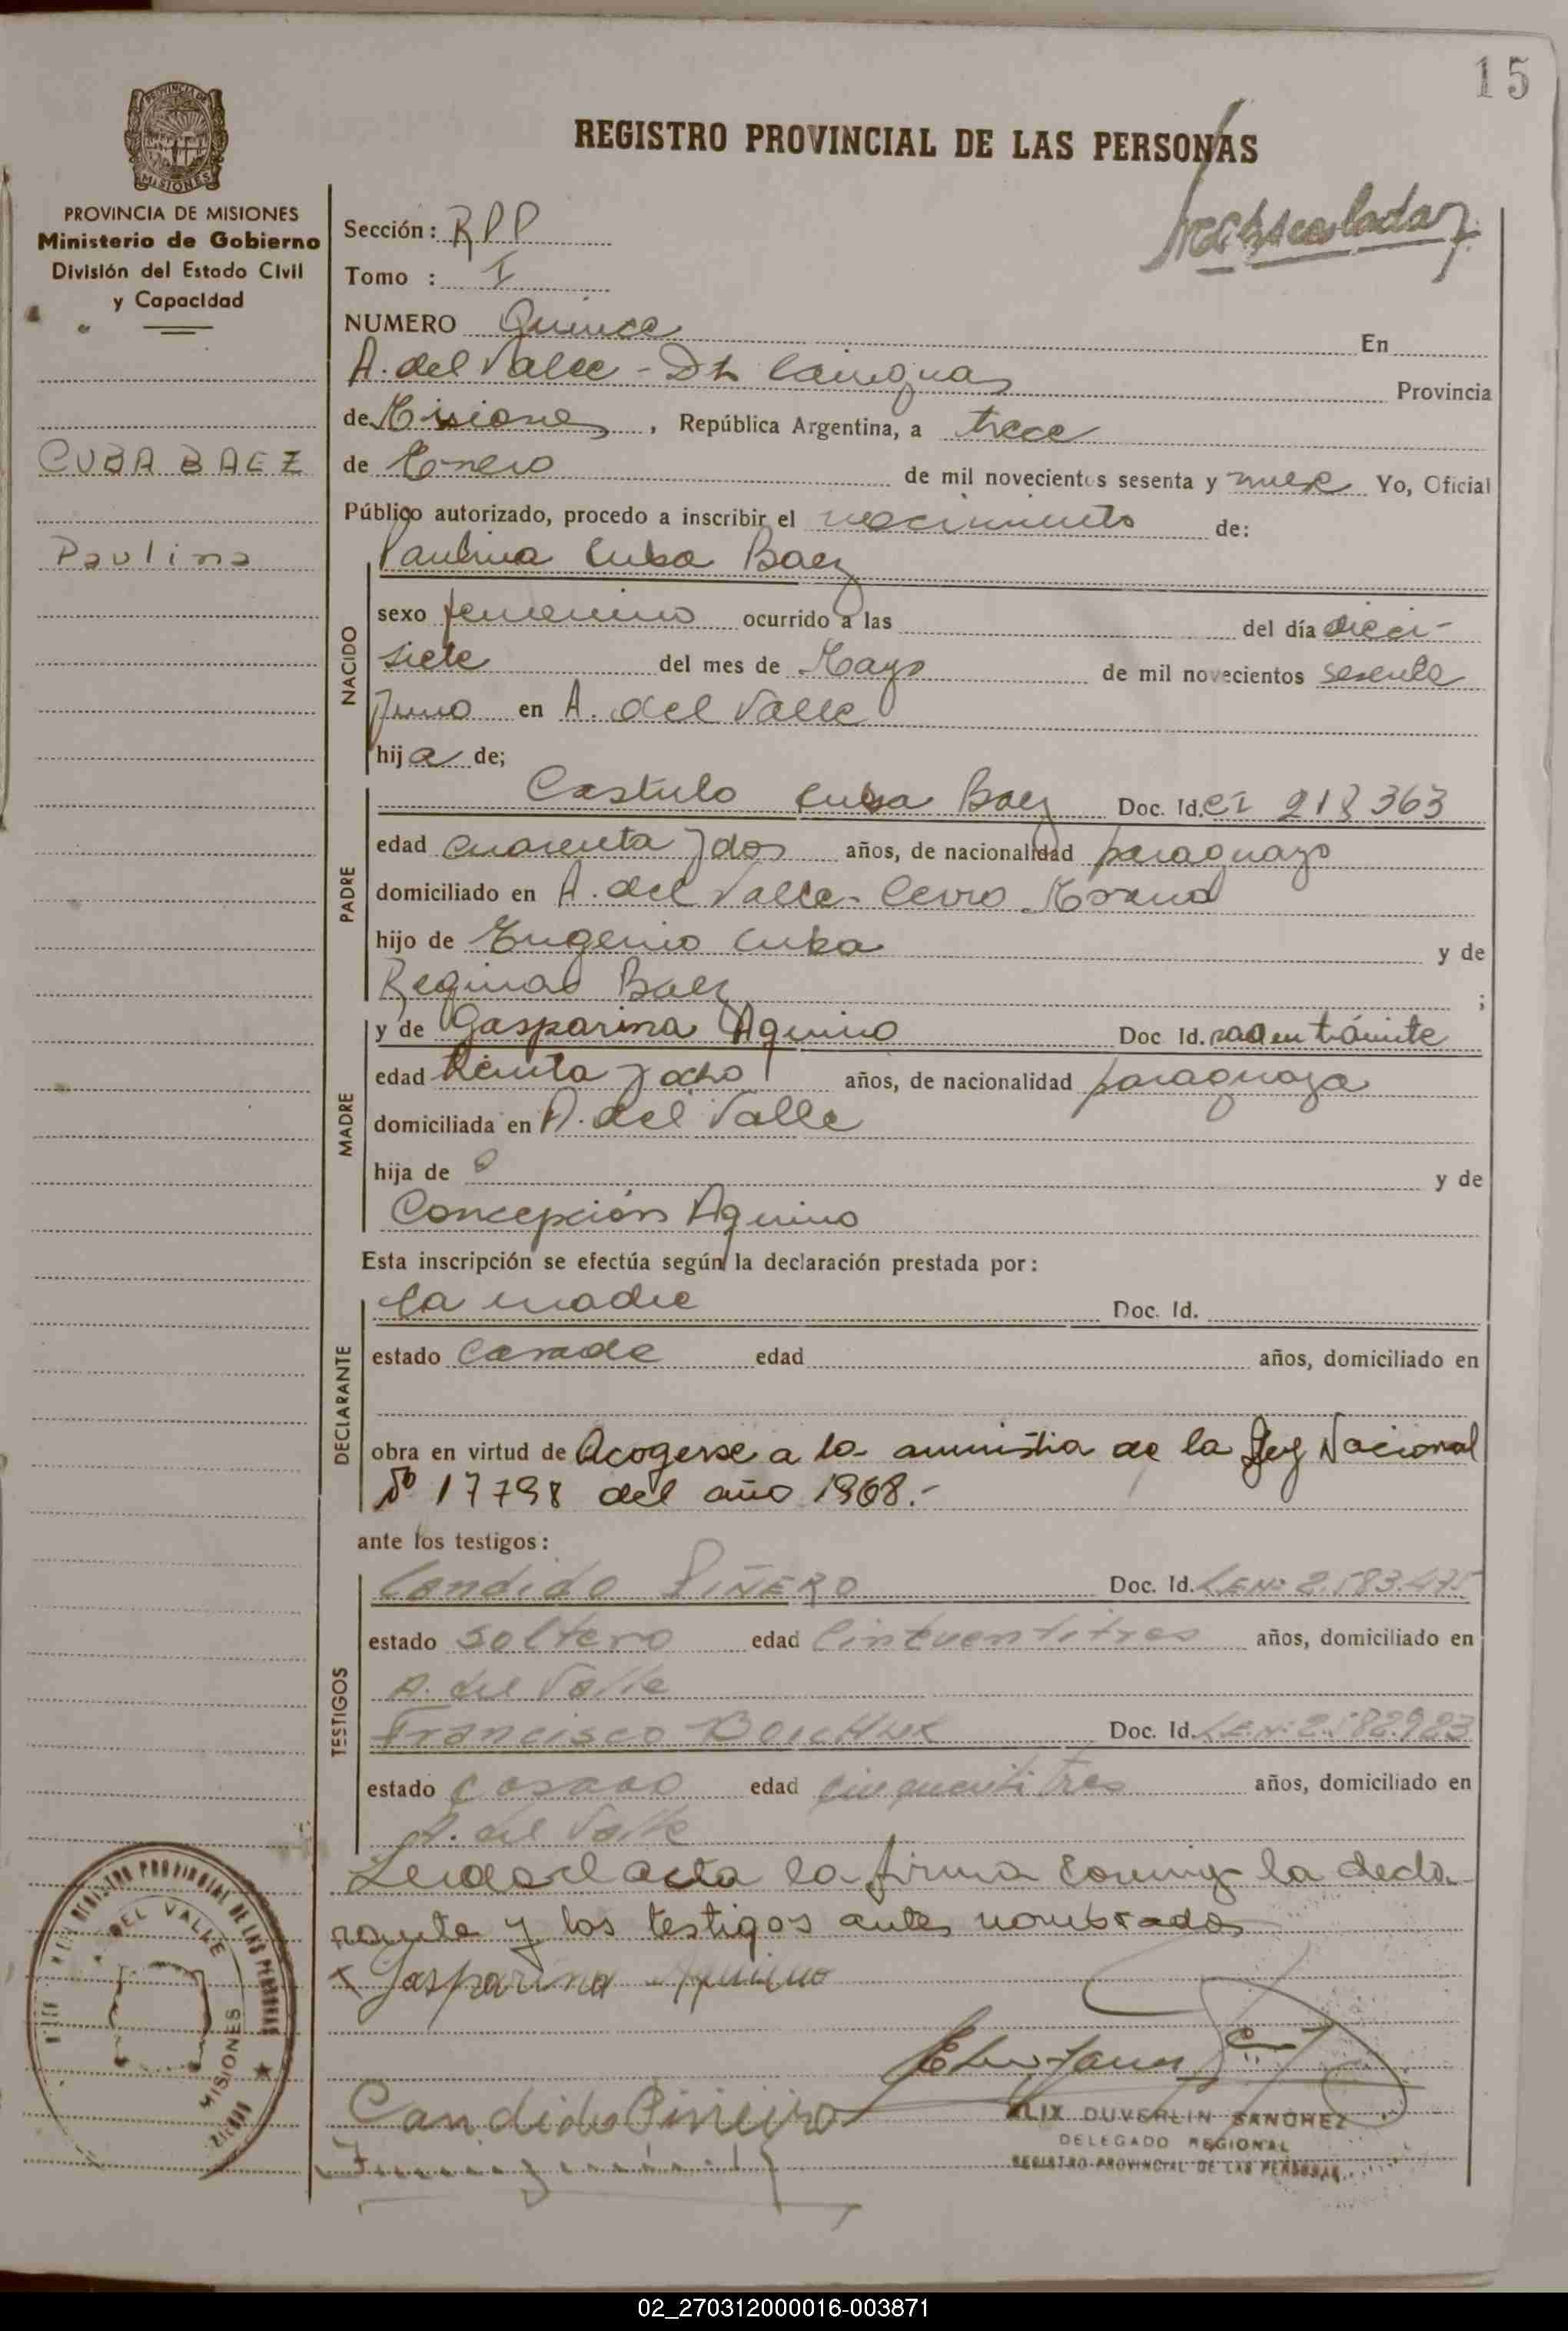 15
REGISTRO PROVINCIAL DE LAS PERSONAS
PROVINCIA DE
MISIONES
PROVINCIA DE MISIONES
Ministerio de Gobierno
División del Estado Civil
y Capacidad
CUBA BAEZ
Paulina
Sección: RPP
Tomo : I
NUMERO Quince En
A. del Valle - Dto Cainguas Provincia
de Misiones, República Argentina, a trece
de Enero de mil novecientos sesenta y nueve Yo, Oficial
Público autorizado, procedo a inscribir el nacimiento de:
Paulina Cuba Baez
NACIDO
sexo femenino ocurrido a las del día dieci-
siete del mes de Mayo de mil novecientos sesenta
y uno en A. del Valle
hija de;
PADRE
Castulo Cuba Baez Doc. Id. CI 218363
edad cuarenta y dos años, de nacionalidad paraguayo
domiciliado en A. del Valle - Cerro Morena
hijo de Eugenio Cuba y de
Baez ;
MADRE
y de Gasparina Aquino Doc Id. en trámite
edad treinta y ocho años, de nacionalidad paraguaya
domiciliada en A. del Valle
hija de y de
Concepción Aquino
Esta inscripción se efectúa según la declaración prestada por:
DECLARANTE
la madre Doc. Id.
estado casada edad años, domiciliado en
obra en virtud de Acogerse a la amnistia de la Ley Nacional
Nº 17798 del año 1968.-
ante los testigos:
TESTIGOS
Candido PIÑERO Doc. Id. L.E.Nº 2.583.475
estado soltero edad Cincuentitres años, domiciliado en
A. del Valle
Francisco Doc. Id. L.E.Nº 2.582.923
estado casado edad cinquentitres años, domiciliado en
A. del Valle
Leida el acta la firma conmigo la decla-
rante y los testigos antes nombrados
x Gasparina Aquino
Candido Piñeiro
REGISTRO PROVINCIAL DE LAS PERSONAS
DEL VALLE
MISIONES
DUVERLIN SANCHEZ
DELEGADO REGIONAL
REGISTRO PROVINCIAL DE LAS PERSONAS
02_270312000016-003871